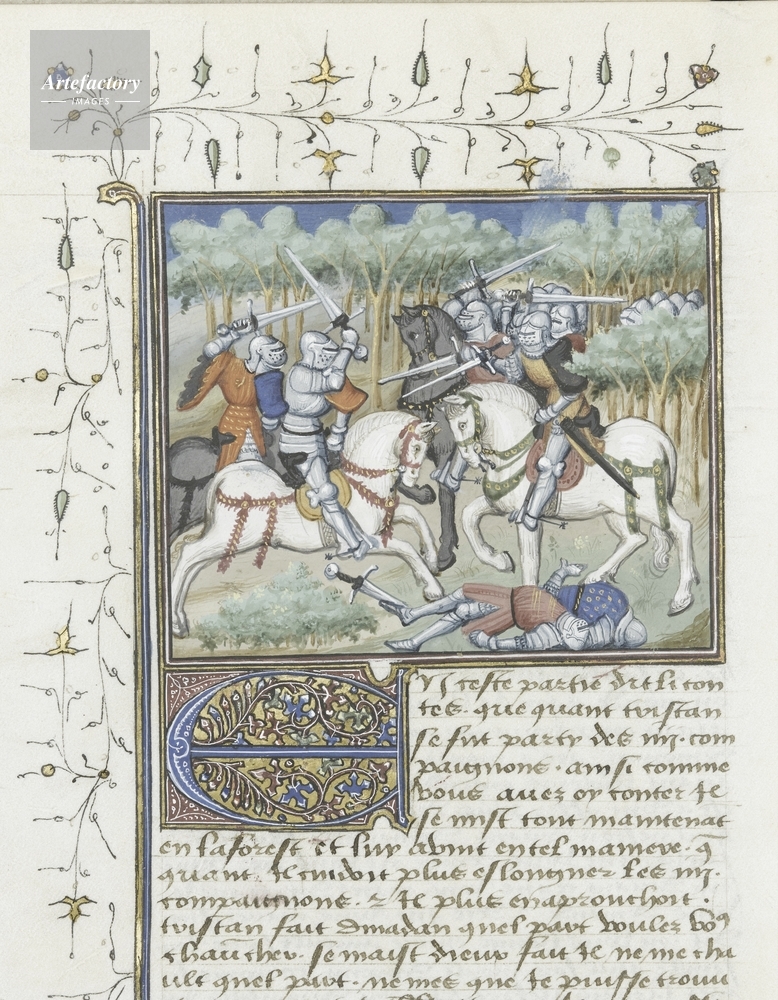 Artefactory
IMAGES
En ceste partie dit li con
tes. que quant tristan
se fut party des iiii. com
paignons. ainsi comme
vous avez oy conter Il
se mist tout maintenāt
en la forest et luy avint en tel maniere. q̄
quant Il cuidoit plus eslongner les iiii.
compaignons. ⁊ Il plus en aprouchoit.
tristan fait dinadan quel part voulez voꝰ
chaūcher. se maist dieux fait Il ne me cha
ult quel part. ne mes que Je puisse trouu